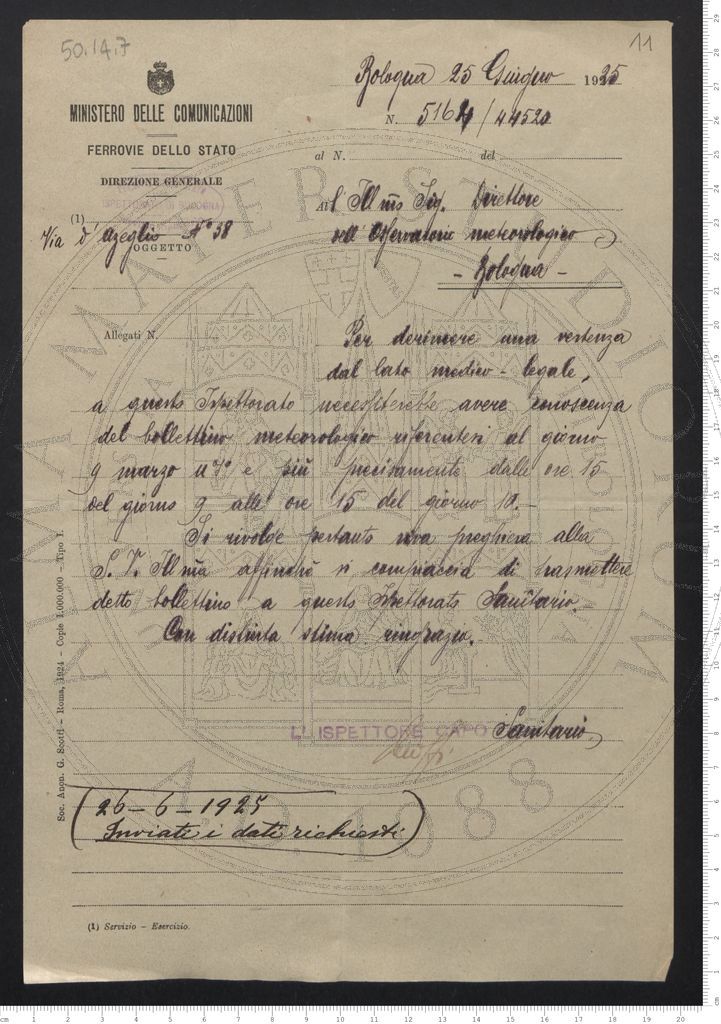 50.14.7
11
Bologna 25 Giugno 1925
MINISTERO DELLE COMUNICAZIONI
N. 5164/44520
FERROVIE DELLO STATO
al N. del
DIREZIONE GENERALE
ISPETTORATO DI BOLOGNA
Al Ill mo Sig. Direttore
(1)
Via d'Azeglio N° 38
dell'Osservatorio meteorologico
OGGETTO
- Bologna -
Allegati N.
Per derimere una vertenza
dal lato medico-legale,
a questo Ispettorato necessiterebbe avere conoscenza
del bollettino meteorologico riferentesi al giorno
9 marzo u° s° e più precisamente dalle ore 15
del giorno 9 alle ore 15 del giorno 10.-
Si rivolge pertanto viva preghiera alla
S. V. Ill ma affinchè si compiaccia di trasmettere
detto bollettino a questo Ispettorato Sanitario.
Con distinta stima ringrazio.
L' ISPETTORE CAPO Sanitario
26-6-1925
Inviati i dati richiesti
(1) Servizio - Esercizio.
Soc. Anon. G. Scotti - Roma, 1924 - Copie 1.000.000 - Tipo I.
ALMA MATER STUDIORUM
A.D. 1088